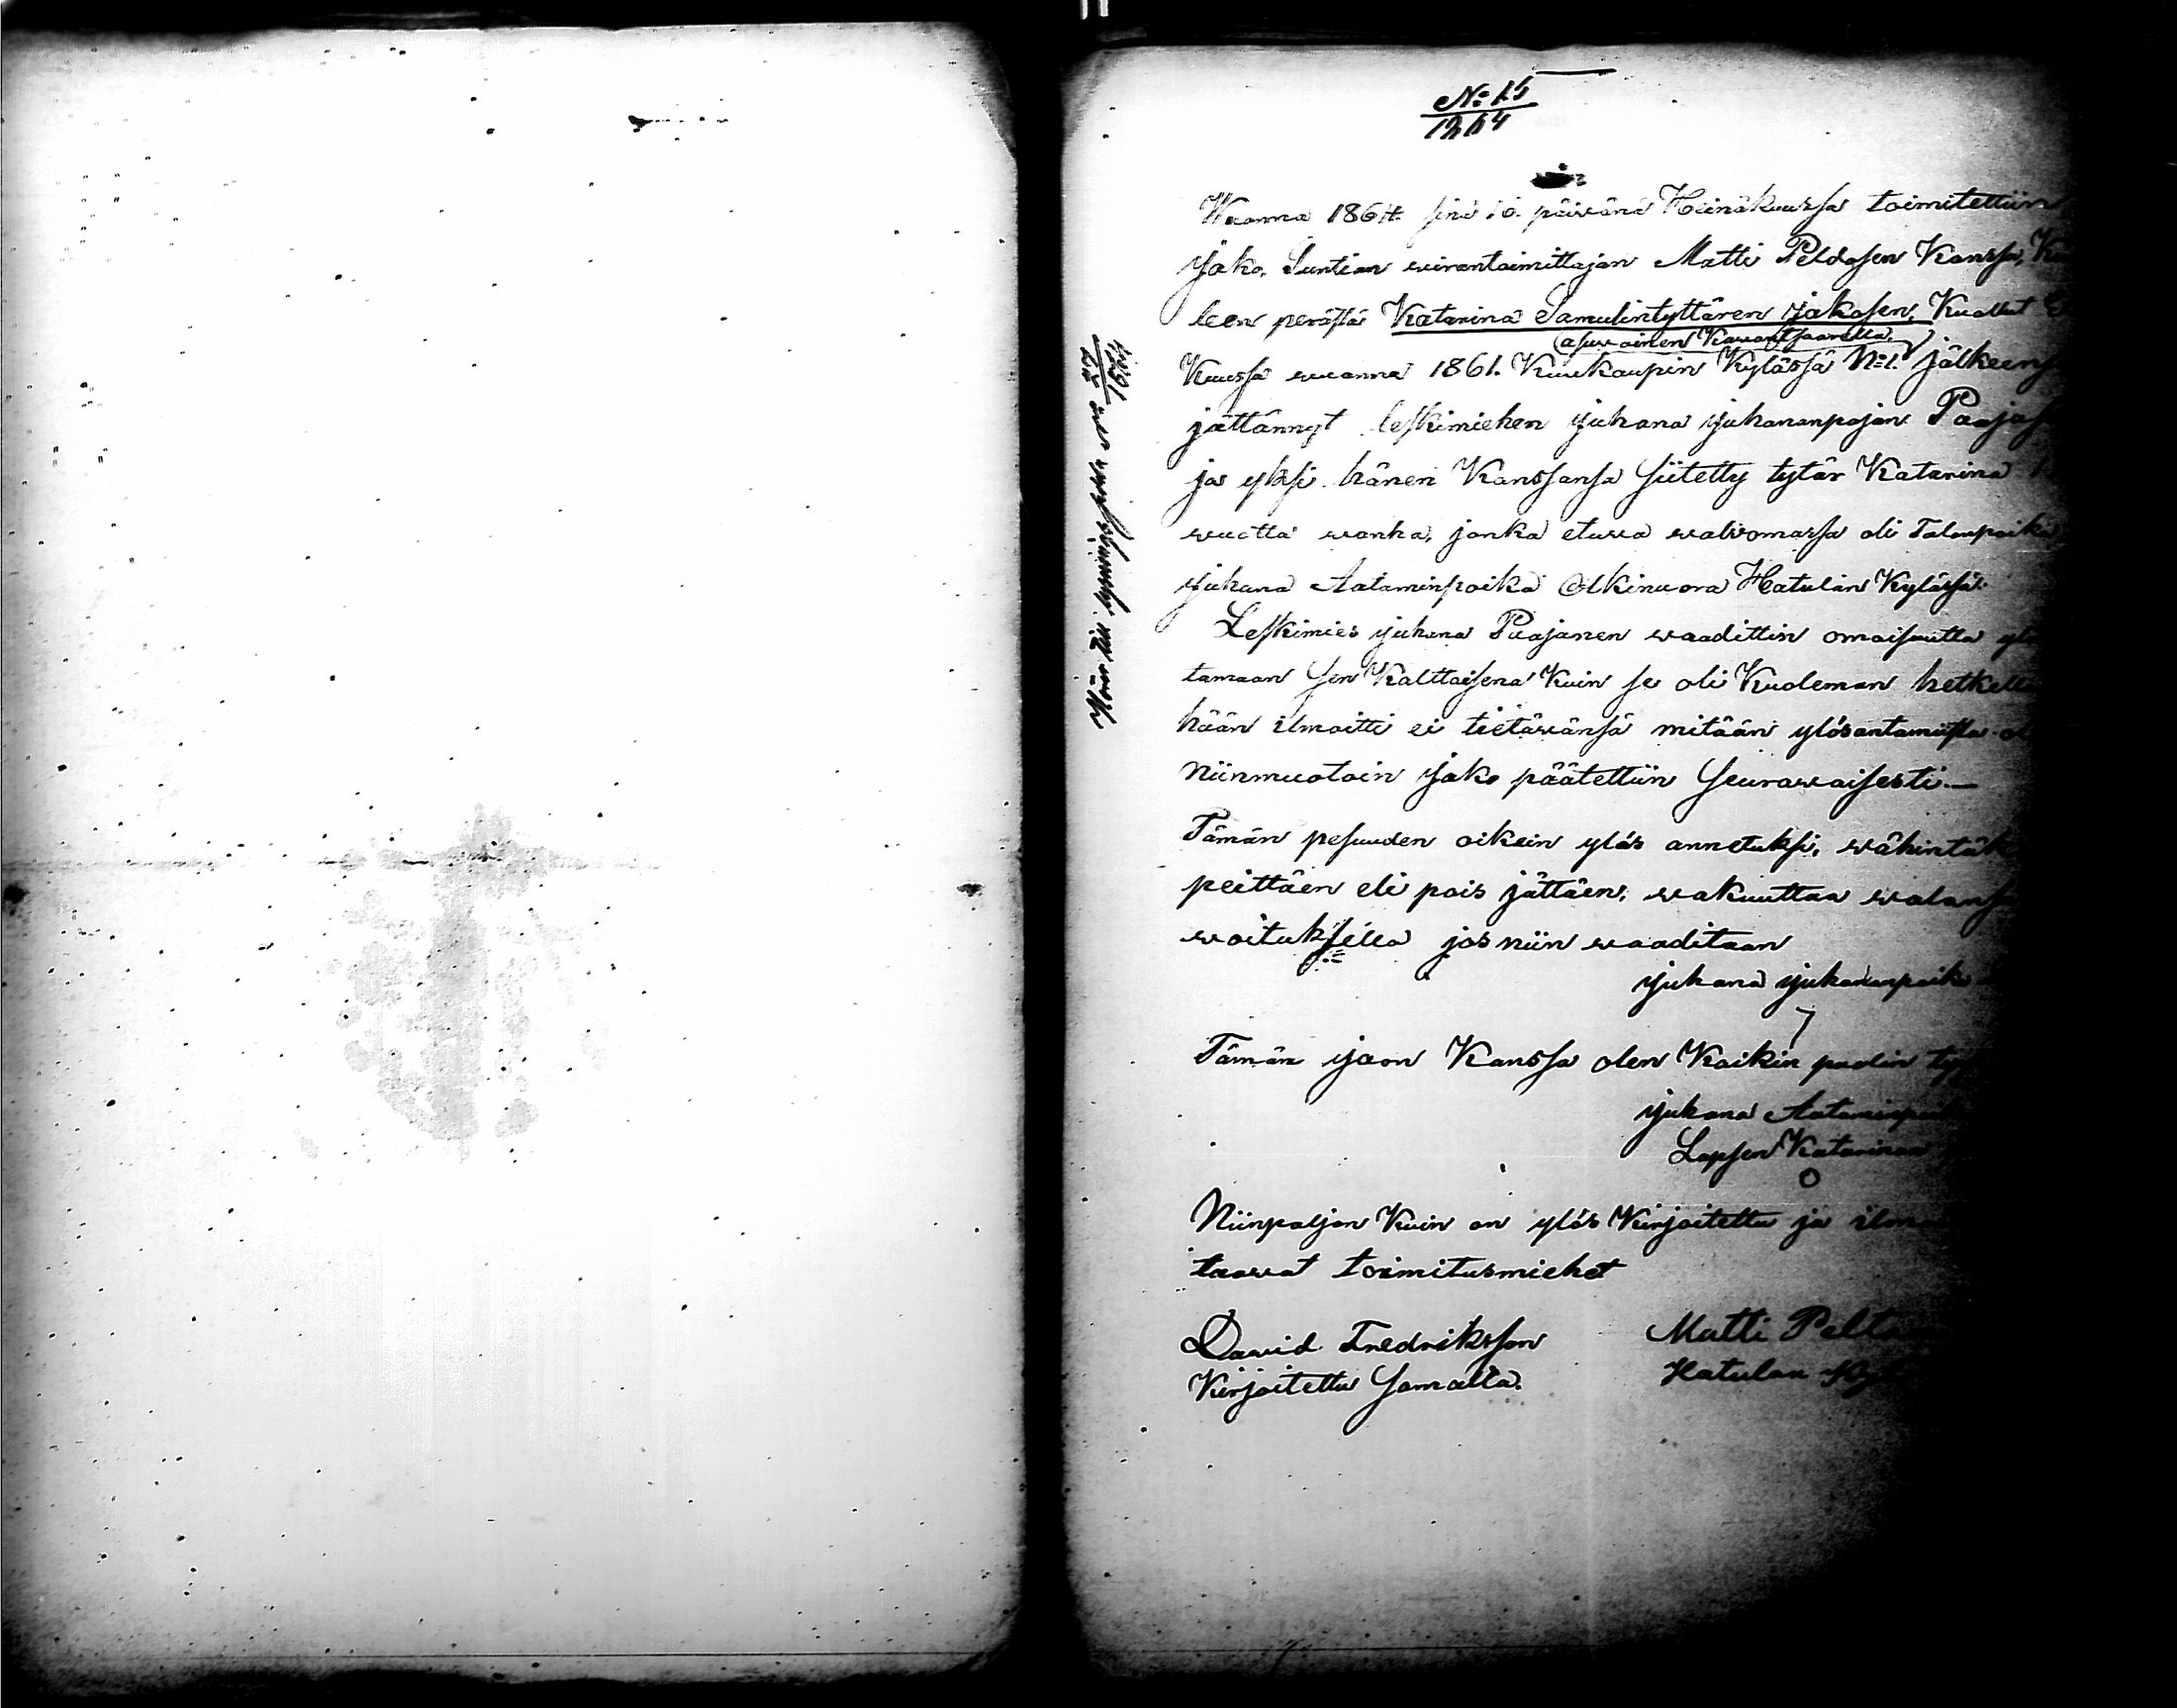 No 15
1864
Wuonna 1864 sinä 16. päiwänä Heinäkuussa toimitettiin
jako, Suntion wirantoimittajan Matti Peldosen Kanssa,
leen perästä Katarina Samulintyttären jakosen, Kuollut
(asuwainen Kawantsaarella)
Kuussa wuonna 1861. Kuukaupin Kylässä No 1. jälkeensä
jättännyt leskimiehen juhana juhananpojan Paajasen
ja yksi hänen Kanssansa siitetty tytär Katarina
wuotta wanha, jonka etuwa walwomassa oli Talonpoika
juhana Aataminpoika Olkinuora Hatulan Kylässä.
Leskimies juhana Paajanen waadittin omaisuutta
tamaan sen Kalttaisena Kuin se oli Kuoleman hetkellä
hään ilmoitti ei tietäwänsä mitään ylösantamista
Niinmuotoin jako päätettiin seurawaisesti.—
Tämän pesuuden oikein ylös annetuksi, wähintäk
peittäen eli pois jättäen, wakuuttaa walansa
woituksella jos niin waaditaan
juhana juhananpoika
Tämän jaon Kanssa olen Kaikin puolin
juhana Aataminpoi
Lapsen Katarinan
Niinpaljon Kuin on ylös Kirjoitettu ja
taawat toimitusmiehet
David Fredriksson
Matti Pelto
Kirjoitettu Samalta.
Hatulan Kyl